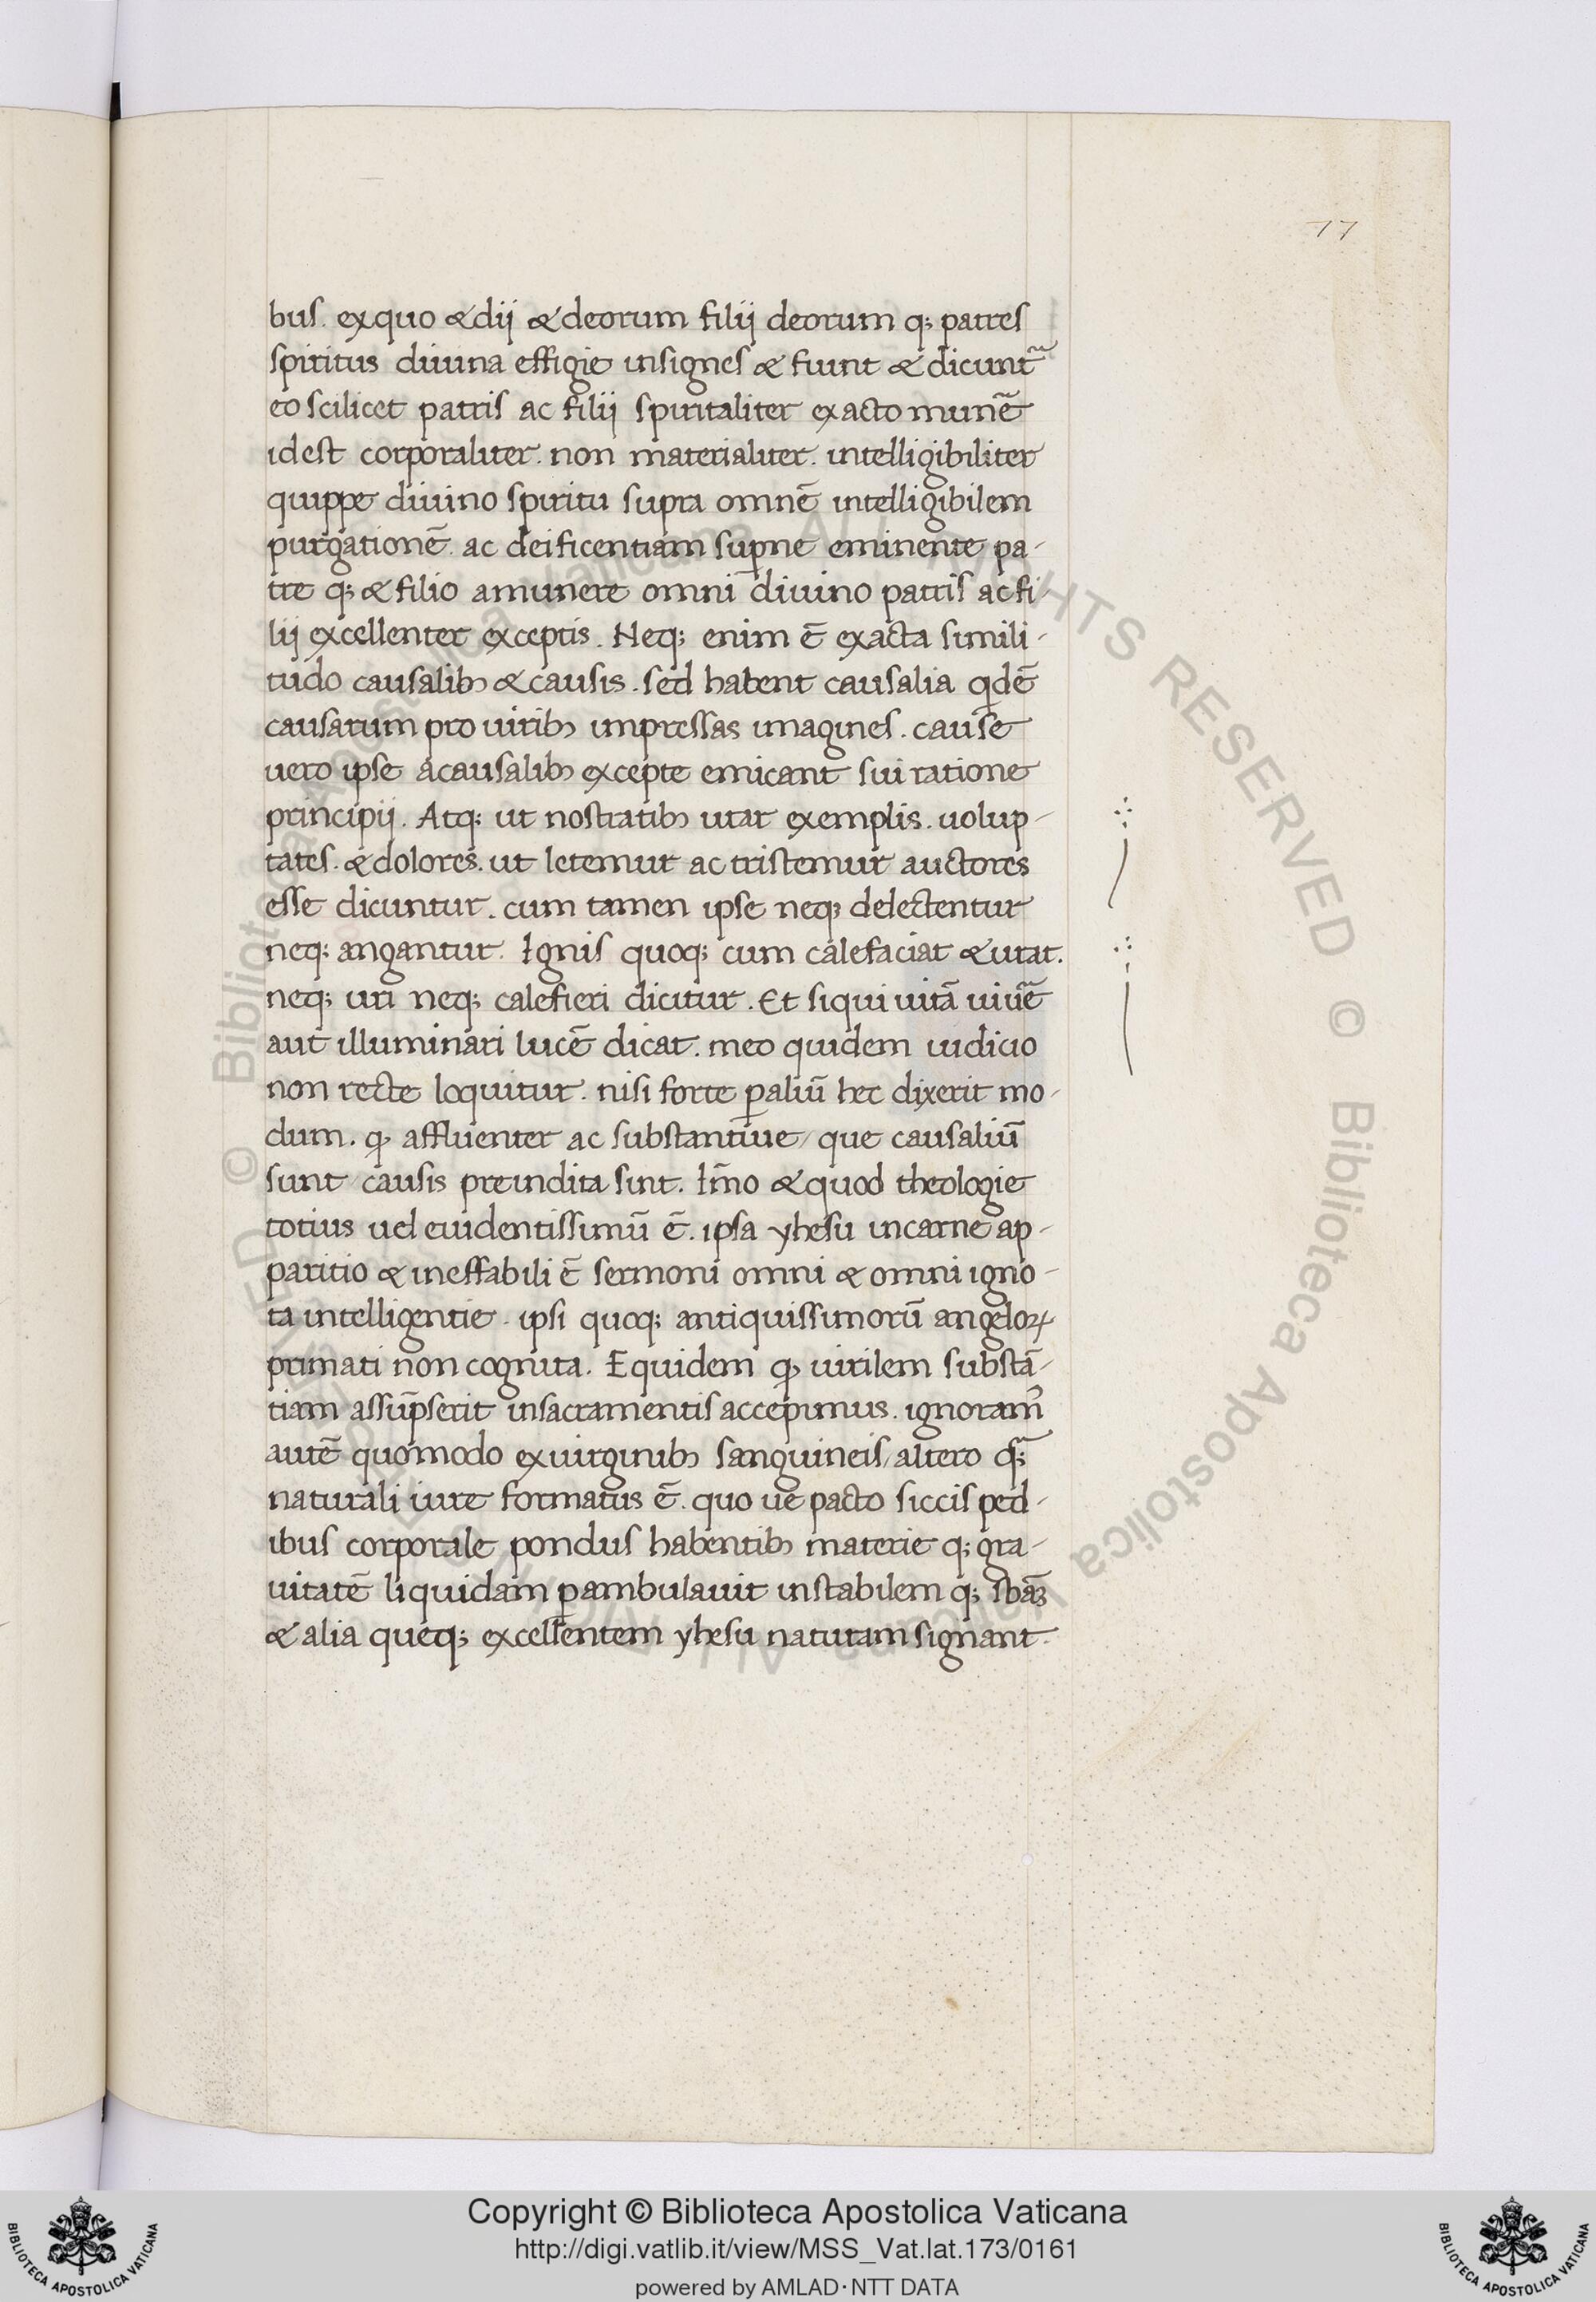 77
bus. ex quo & dii & deorum filii deorum q; patres
spiritus diuina effigie insignes & fiunt & dicunt᷑
eo scilicet patris ac filii spiritaliter exacto munē
id est corporaliter. non materialiter. intelligibiliter
quippe diuino spiritu supra omnē intelligibilem
purgationē. ac deificentiam suꝑne eminente pa-
tre q; & filio a munere omni diuino patris ac fi-
lii excellenter exceptis. Neq; enim ē exacta simili-
tudo causalibꝫ & causis. sed habent causalia qdē
causarum pro uiribꝫ impressas imagines. cause
uero ipse a causalibꝫ excepte emicant sui ratione
principii. Atq; ut nostratibꝫ utar exemplis. uolup-
tates. & dolores. ut letemur ac tristemur auctores
esse dicuntur. cum tamen ipse neq; delectentur
neq; angantur. Ignis quoq; cum calefaciat & urat.
neq; uri neq; calefieri dicitur. Et siqui uitā uiuē
aut illuminari lucē dicat. meo quidem iudicio
non recte loquitur. nisi forte ꝑ aliū hec dixerit mo-
dum. ꝙ affluenter ac substantiue/ que causaliū
sunt/ causis preindita sint. Im̄o & quod theologie
totius uel euidentissimū ē. ipsa yhesu in carne ap-
paritio & ineffabili ē sermoni omni & omni igno-
ta intelligentie. ipsi quoq; antiquissimorū angeloꝝ
primati non cognita. Equidem ꝙ uirilem substā-
tiam assūpserit in sacramentis accepimus. ignoram᷒
autē quomodo ex uirginibꝫ sanguineis/ altero q;
naturali iure formatus ē. quo ue pacto siccis ped-
ibus corporale pondus habentibꝫ materie q; gra-
uitatē liquidam ꝑambulauit instabilem q; sbāꝫ
& alia queq; excellentem yhesu naturam signant.
© Biblioteca Apostolica Vaticana ALL RIGHTS RESERVED © Biblioteca Apostolica Vaticana ALL RIGHTS RESERVED
Copyright © Biblioteca Apostolica Vaticana
http://digi.vatlib.it/view/MSS_Vat.lat.173/0161
powered by AMLAD·NTT DATA
BIBLIOTECA APOSTOLICA VATICANA
BIBLIOTECA APOSTOLICA VATICANA